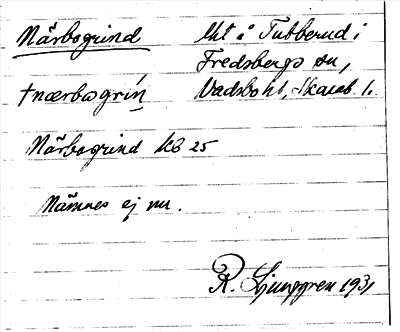 Närbogrind lht å Tubberud i
Fredsbergs sn,
†nærbogrin Vadsbo hd, Skarab. l.
Närbogrind KB 25
Nämnes ej nu.
R. Ljunggren 1931